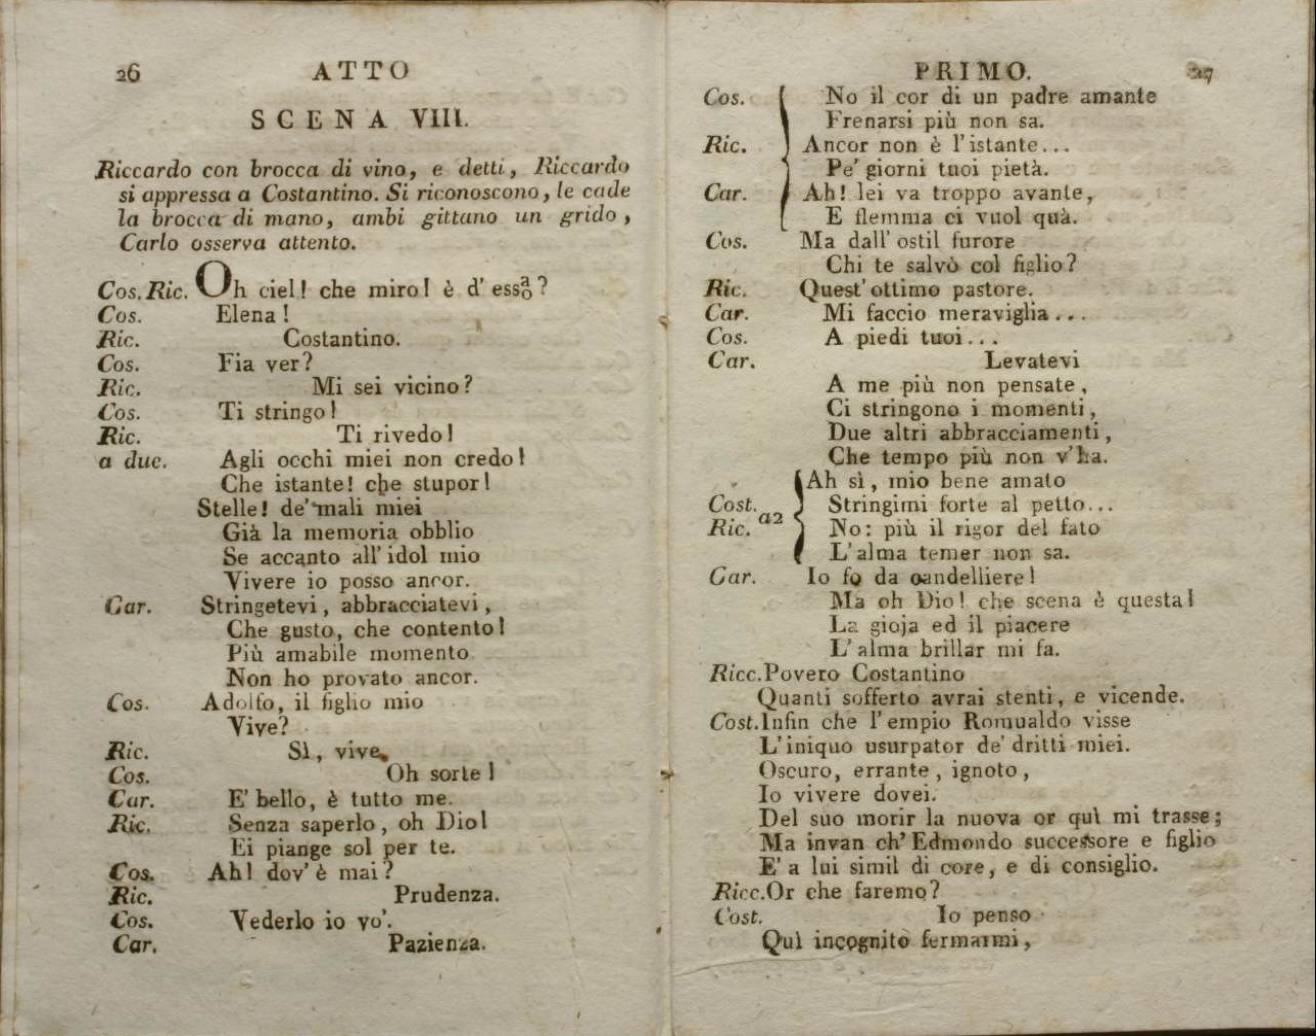 26 ATTO
SCENA VIII.
Riccardo con brocca di vino, e detti, Riccardo
si appressa a Costantino. Si riconoscono, le cade
la brocca di mano, ambi gittano un grido,
Carlo osserva attento.
Cos. Ric. Oh ciel! che miro! è d' essao?
Cos. Elena!
Ric. Costantino.
Cos. Fia ver?
Ric. Mi sei vicino?
Cos. Ti stringo!
Ric. Ti rivedo!
a due. Agli occhi miei non credo!
Che istante! che stupor!
Stelle! de' mali miei
Già la memoria obblio
Se accanto all' idol mio
Vivere io posso ancor.
Car. Stringetevi, abbracciatevi,
Che gusto, che contento!
Più amabile momento
Non ho provato ancor.
Cos. Adolfo, il figlio mio
Vive?
Ric. Sì, vive.
Cos. Oh sorte!
Car. E' bello, è tutto me.
Ric. Senza saperlo, oh Dio!
Ei piange sol per te.
Cos. Ah! dov' è mai?
Ric. Prudenza.
Cos. Vederlo io vo'.
Car. Pazienza.
PRIMO. 27
Cos. No il cor di un padre amante
Frenarsi più non sa.
Ric. Ancor non è l' istante...
Pe' giorni tuoi pietà.
Car. Ah! lei va troppo avante,
E flemma ci vuol quà.
Cos. Ma dall' ostil furore
Chi te salvò col figlio?
Ric. Quest' ottimo pastore.
Car. Mi faccio meraviglia...
Cos. A piedi tuoi...
Car. Levatevi
A me più non pensate,
Ci stringono i momenti,
Due altri abbracciamenti,
Che tempo più non v'ha.
Ah sì, mio bene amato
Cost. Stringimi forte al petto...
Ric. a2 No: più il rigor del fato
L' alma temer non sa.
Car. Io fo da candelliere!
Ma oh Dio! che scena è questa!
La gioja ed il piacere
L' alma brillar mi fa.
Ricc. Povero Costantino
Quanti sofferto avrai stenti, e vicende.
Cost. Infin che l' empio Romualdo visse
L' iniquo usurpator de' dritti miei.
Oscuro, errante, ignoto,
Io vivere dovei.
Del suo morir la nuova or quì mi trasse;
Ma invan ch' Edmondo successore e figlio
E' a lui simil di core, e di consiglio.
Ricc. Or che faremo?
Cost. Io penso
Quì incognito fermarmi,